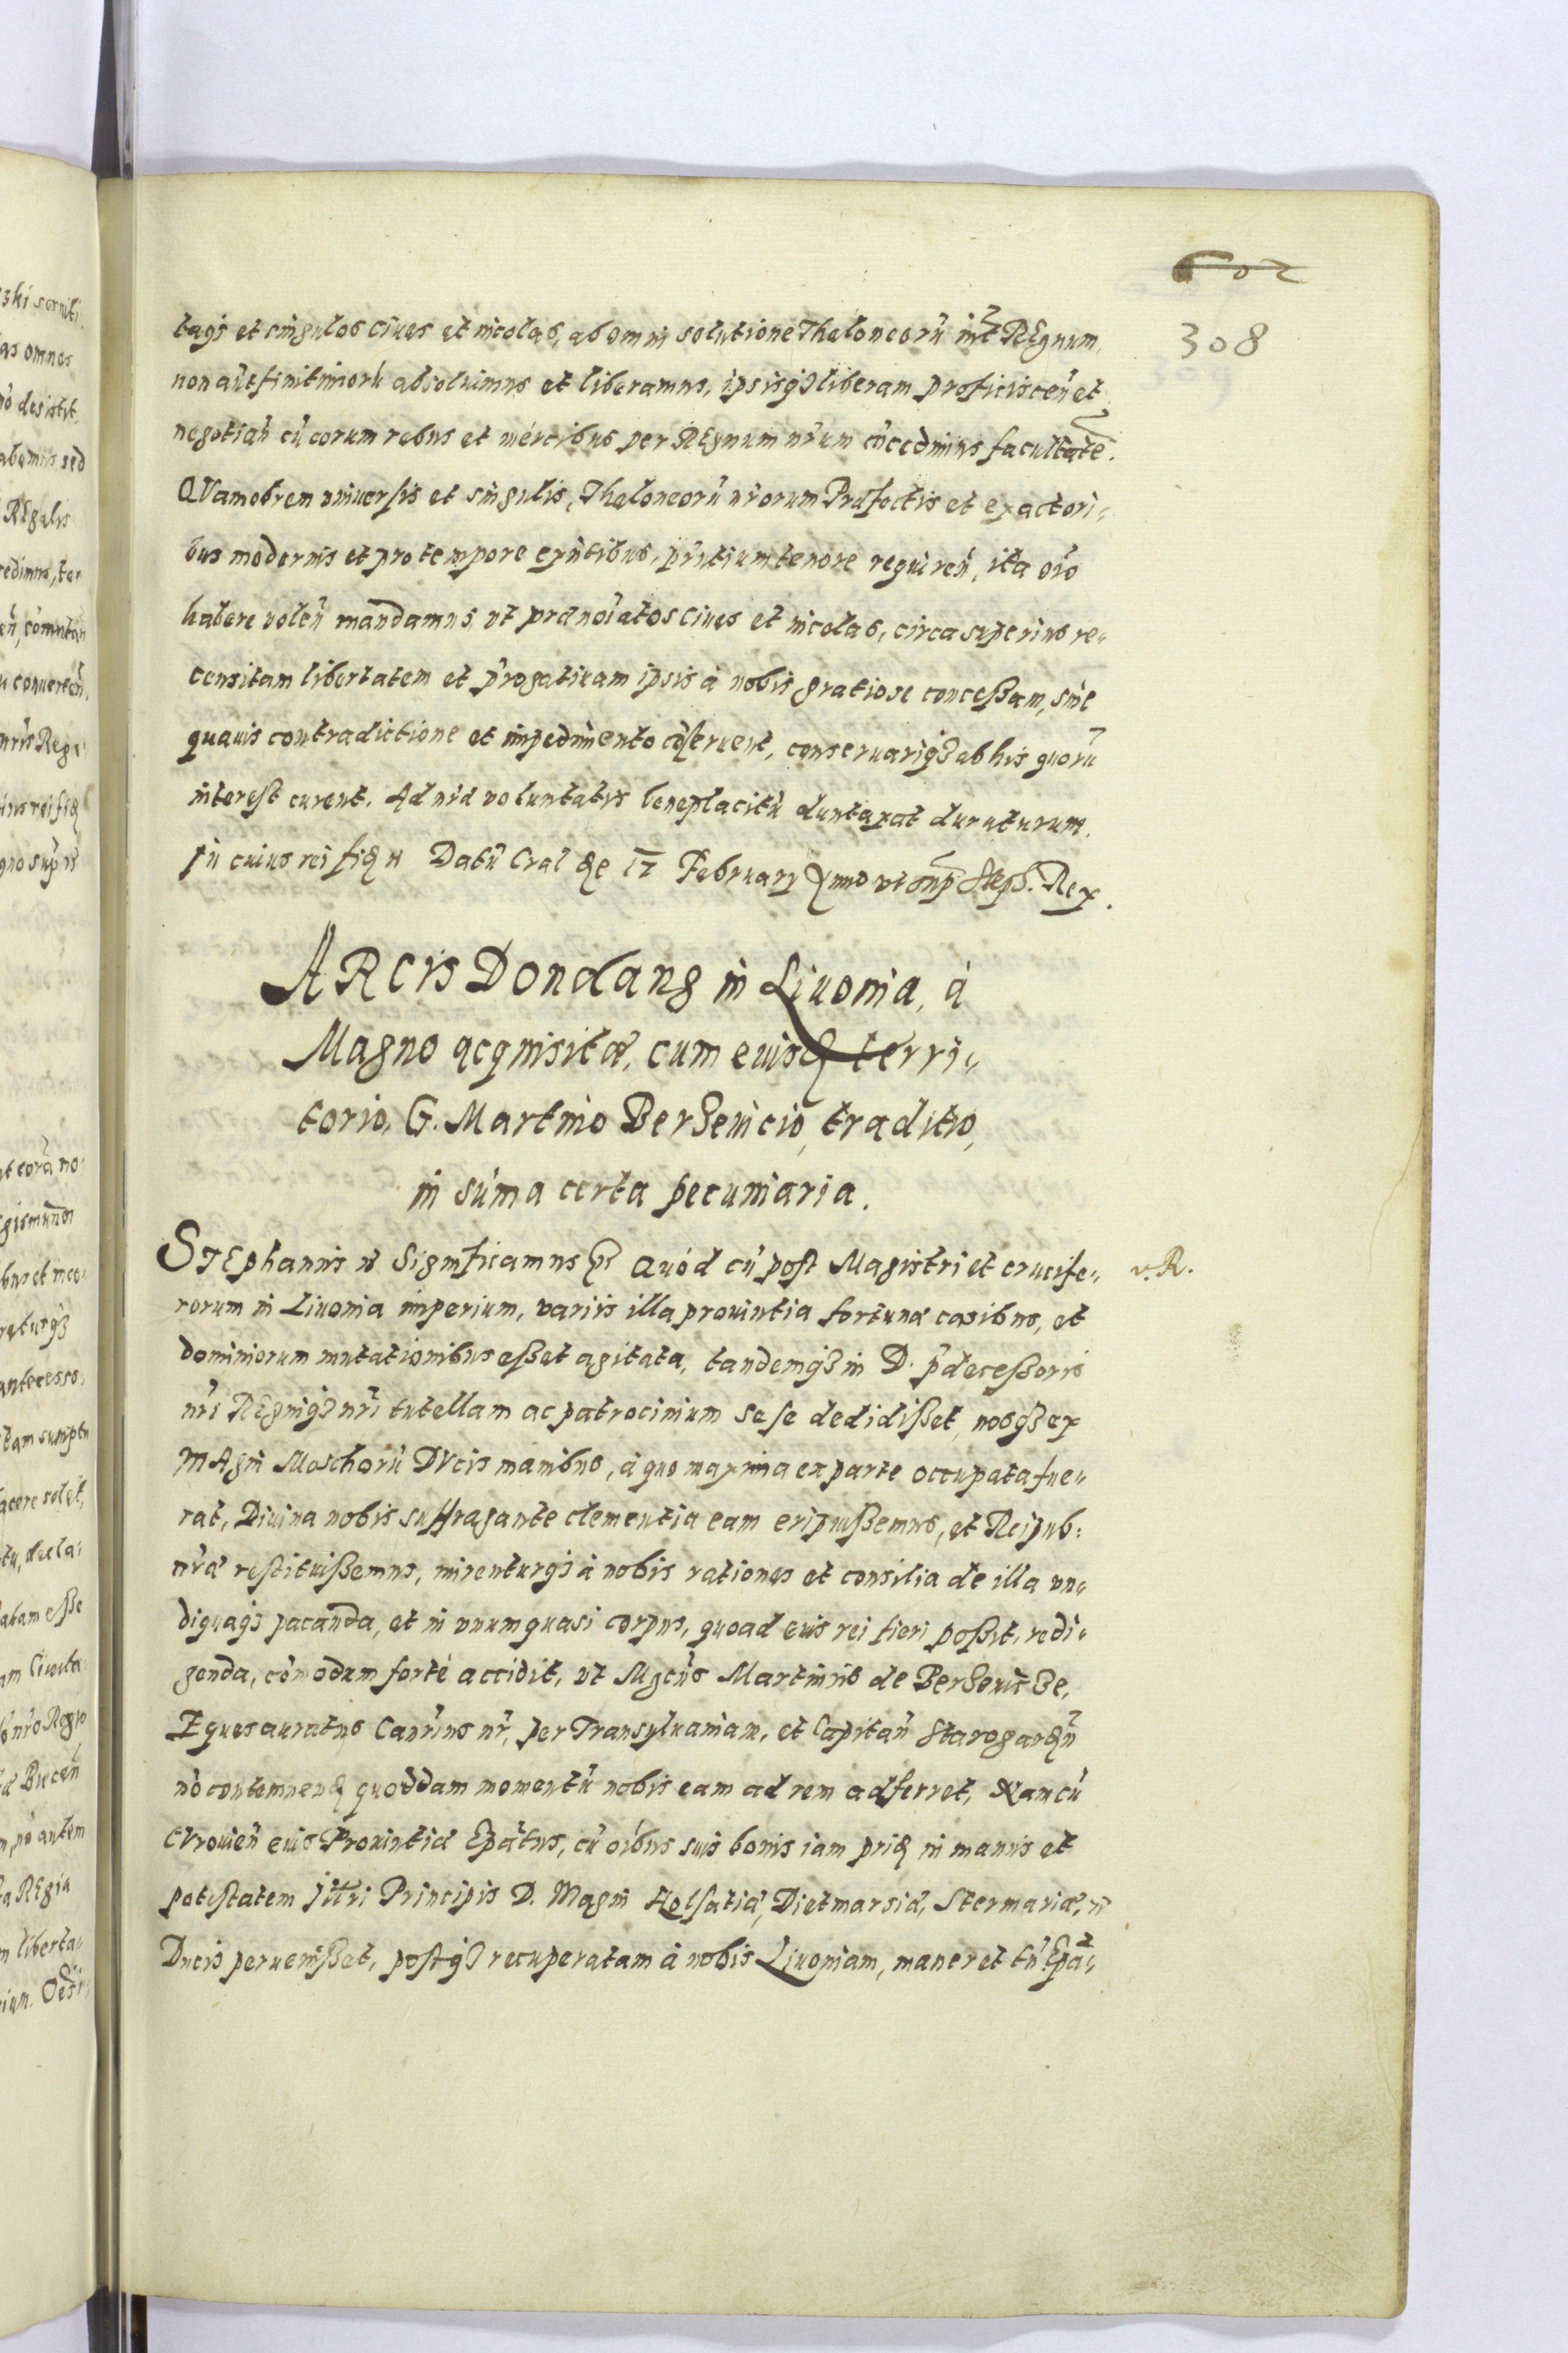 308
tasq3 et singulos ciues et incolas, ab omni solutione Theloneorũ int̃ REgnum,
non aũt finitimorũ absoluimus et liberamus, ipsisq3 liberam proficiscen̄ et
negotian̄ cũ eorum rebus et mercibus per REgnum nr̃um cõcedimus facultatẽ.
QVamobrem vniuersis et singulis, Theloneorũ nr̃orum Præfectis et exactori„
bus modernis et pro tempore exñtibus, pñtium tenore requiren̄, ita oĩo
habere volen̄ mandamus vt prænoĩatos Ciues et incolas, circa superius re„
censitam libertatem et p̃rogatiuam ipsis à nobis gratiose conceßam, sine
quauis contradictione et impedimento cõseruent, conseruariq3 ab his quorũ
interest curent. Ad nr̃æ voluntatis beneplacitũ duntaxat duraturum.
In cuius rei Datũ 17 February Anno vt sup̃ Steph. Rex.
ARCis Dondang in Liuonia, à
Magno acquisitæ, cum eiusd terri„
torio, G. Martino Berzeuicio, traditio,
in sũma certa pecuniaria.
STEphanus Significamus Quód cũ post Magistri et crucife„
v. R.
rorum in Liuonia imperium, variis illa prouintia fortunæ casibus, et
dominiorum mutationibus eßet agitata, tandemq3 in D. p̃decessoris
nr̃i REgniq3 nr̃i tutellam ac patrocinium sese dedidißet, nosq3 ex
MAgni Moschorũ DVcis manibus, à quo maxima ex parte occupata fue„
rat, Diuina nobis suffragante clementia eam eripuißemus, et Reipub:
nr̃æ restituißemus, inirenturq3 à nobis rationes et consilia de illa vn„
diquaq3 pacanda, et in vnum quasi corpus, quoad eius rei fieri poßit, redi„
genda, cõmodum forté accidit, vt Mgcũs Martinus de Berzeuicze,
Eques auratus Canr̃ius nr̃, per Transyluaniam, et Capitan̄ Starogardn̄
nõ contemnend quoddam momentũ nobis eam ad rem adferret, Nam cũ
CVronien̄ eius Prouintiæ Epãtus, cũ oĩbus suis bonis iam prid in manus et
potestatem Illr̃i Principis D. Magni Holsatiæ, Dietmarsiæ, Stermariæ,
Ducis peruenißet, postq3 recuperatam à nobis Liuoniam, maneret tñ Epã„